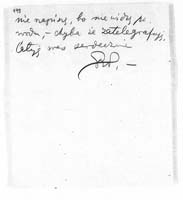 nie napiszę, bo nie widzę po-
wodu, – chyba że zatelegrafuję.
Całuję was serdecznie